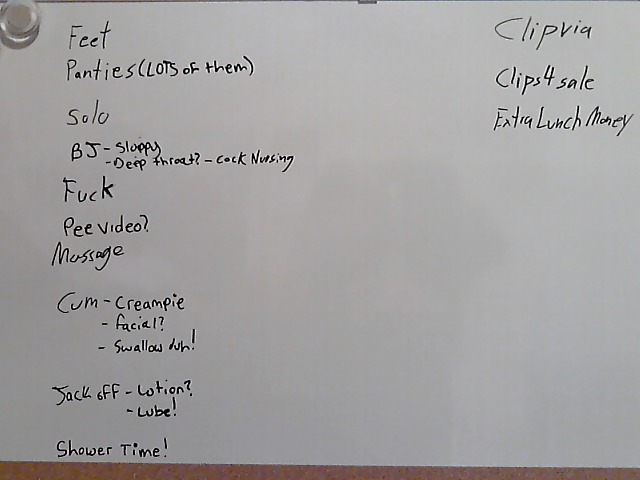 Feet
Panties (LOTS of them)
Solo
BJ - Sloppy
- Deep throat? - Cock Nursing
Fuck
Pee video?
Massage
Cum - Creampie
- Facial?
- Swallow duh!
Jack off - Lotion?
- Lube!
Shower Time!
Clipvia
Clips4sale
Extra Lunch Money